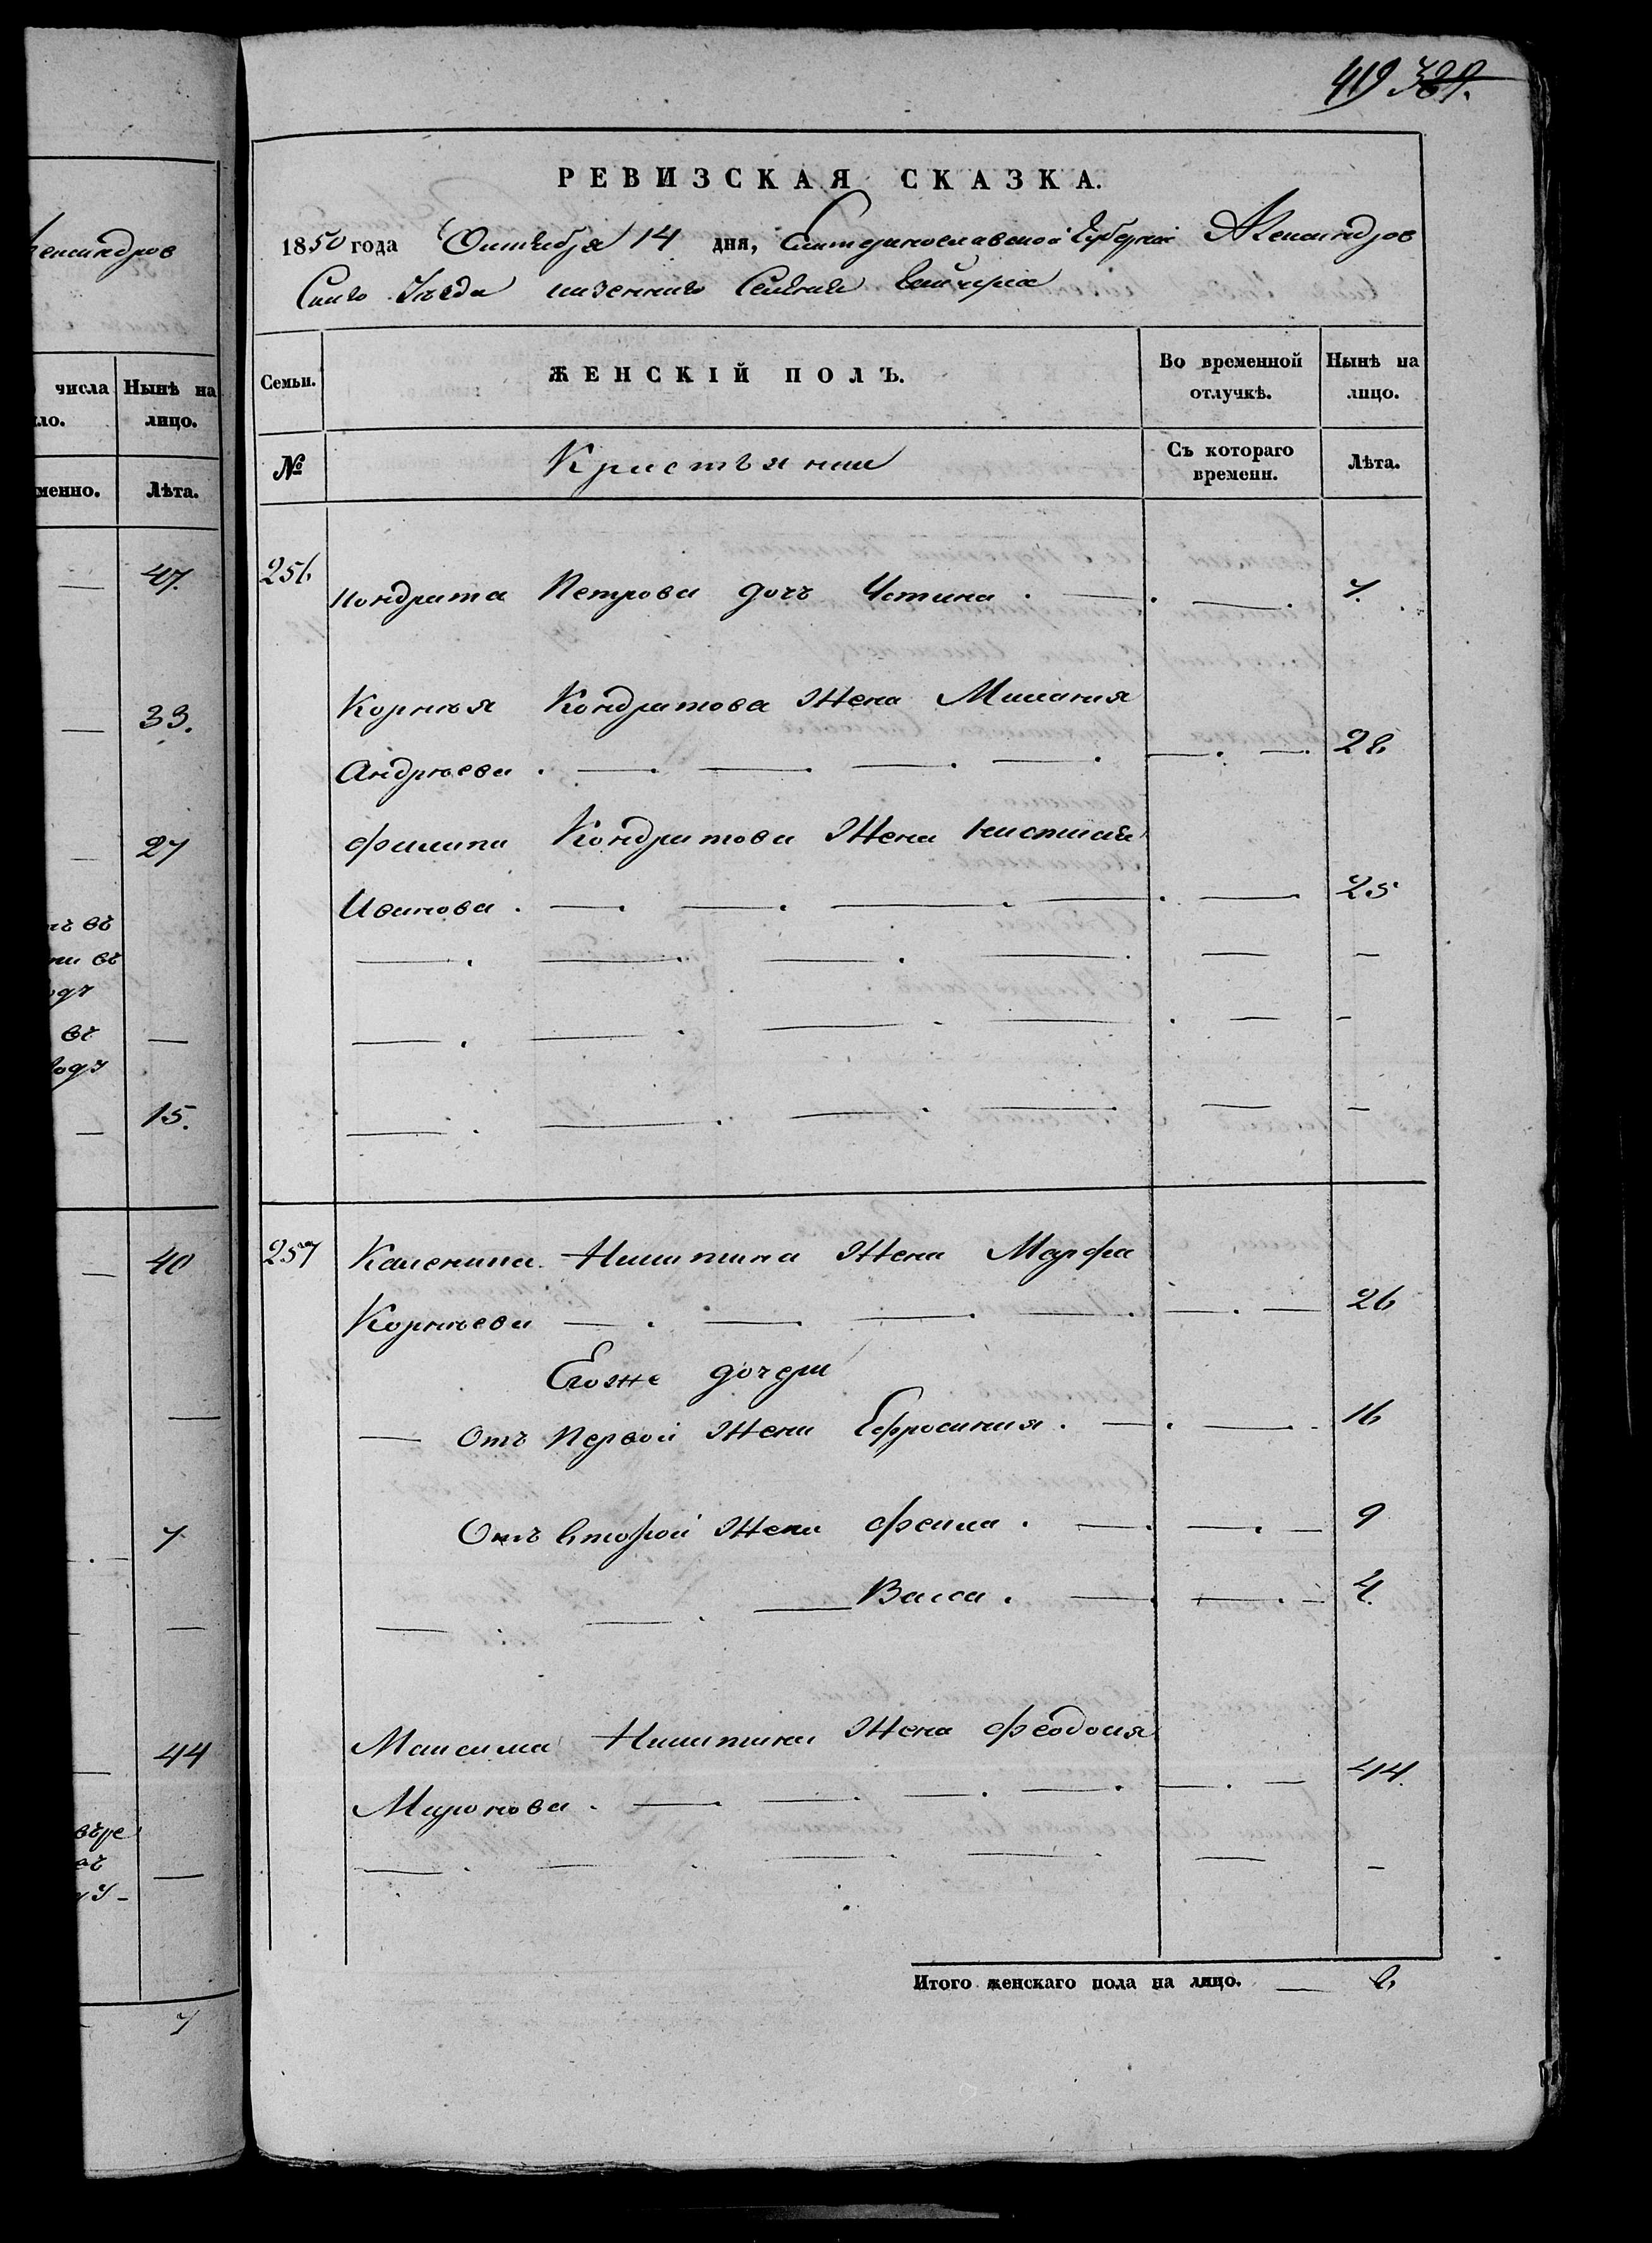 419 389.
РЕВИЗСКАЯ СКАЗКА.
1850 года Октября 14 дня, Екатеринославской Губернiи Александров
Скаго Уѣзда казеннаго Селенiя
Семьи.
ЖЕНСКIЙ ПОЛЪ.
Во временной отлучкѣ.
Нынѣ на лицо.
№
Крестьянки
Съ котораго времени.
Лѣта.
256
Кондрата Петрова дочь Устина 7.
Корнѣя Кондратова Жена Милания
Андрѣева 28
Филипа Кондратова Жена
Иванова 25
257 Каленика Никитина Жена Марфа
Корнѣева 26
Егоже дочери
Отъ Первой Жены Ефросиния 16
Отъ второй Жены Фекла 9
Васса 4.
Максима Никитина Жена Феодосия
Миронова 44.
Итого женскаго пола на лицо. 8
лександров
числа
ло.
Нынѣ на лицо.
менно.
Лѣта.
47.
33.
27
въ
въ
одъ
въ
году
15.
40
7
44
7